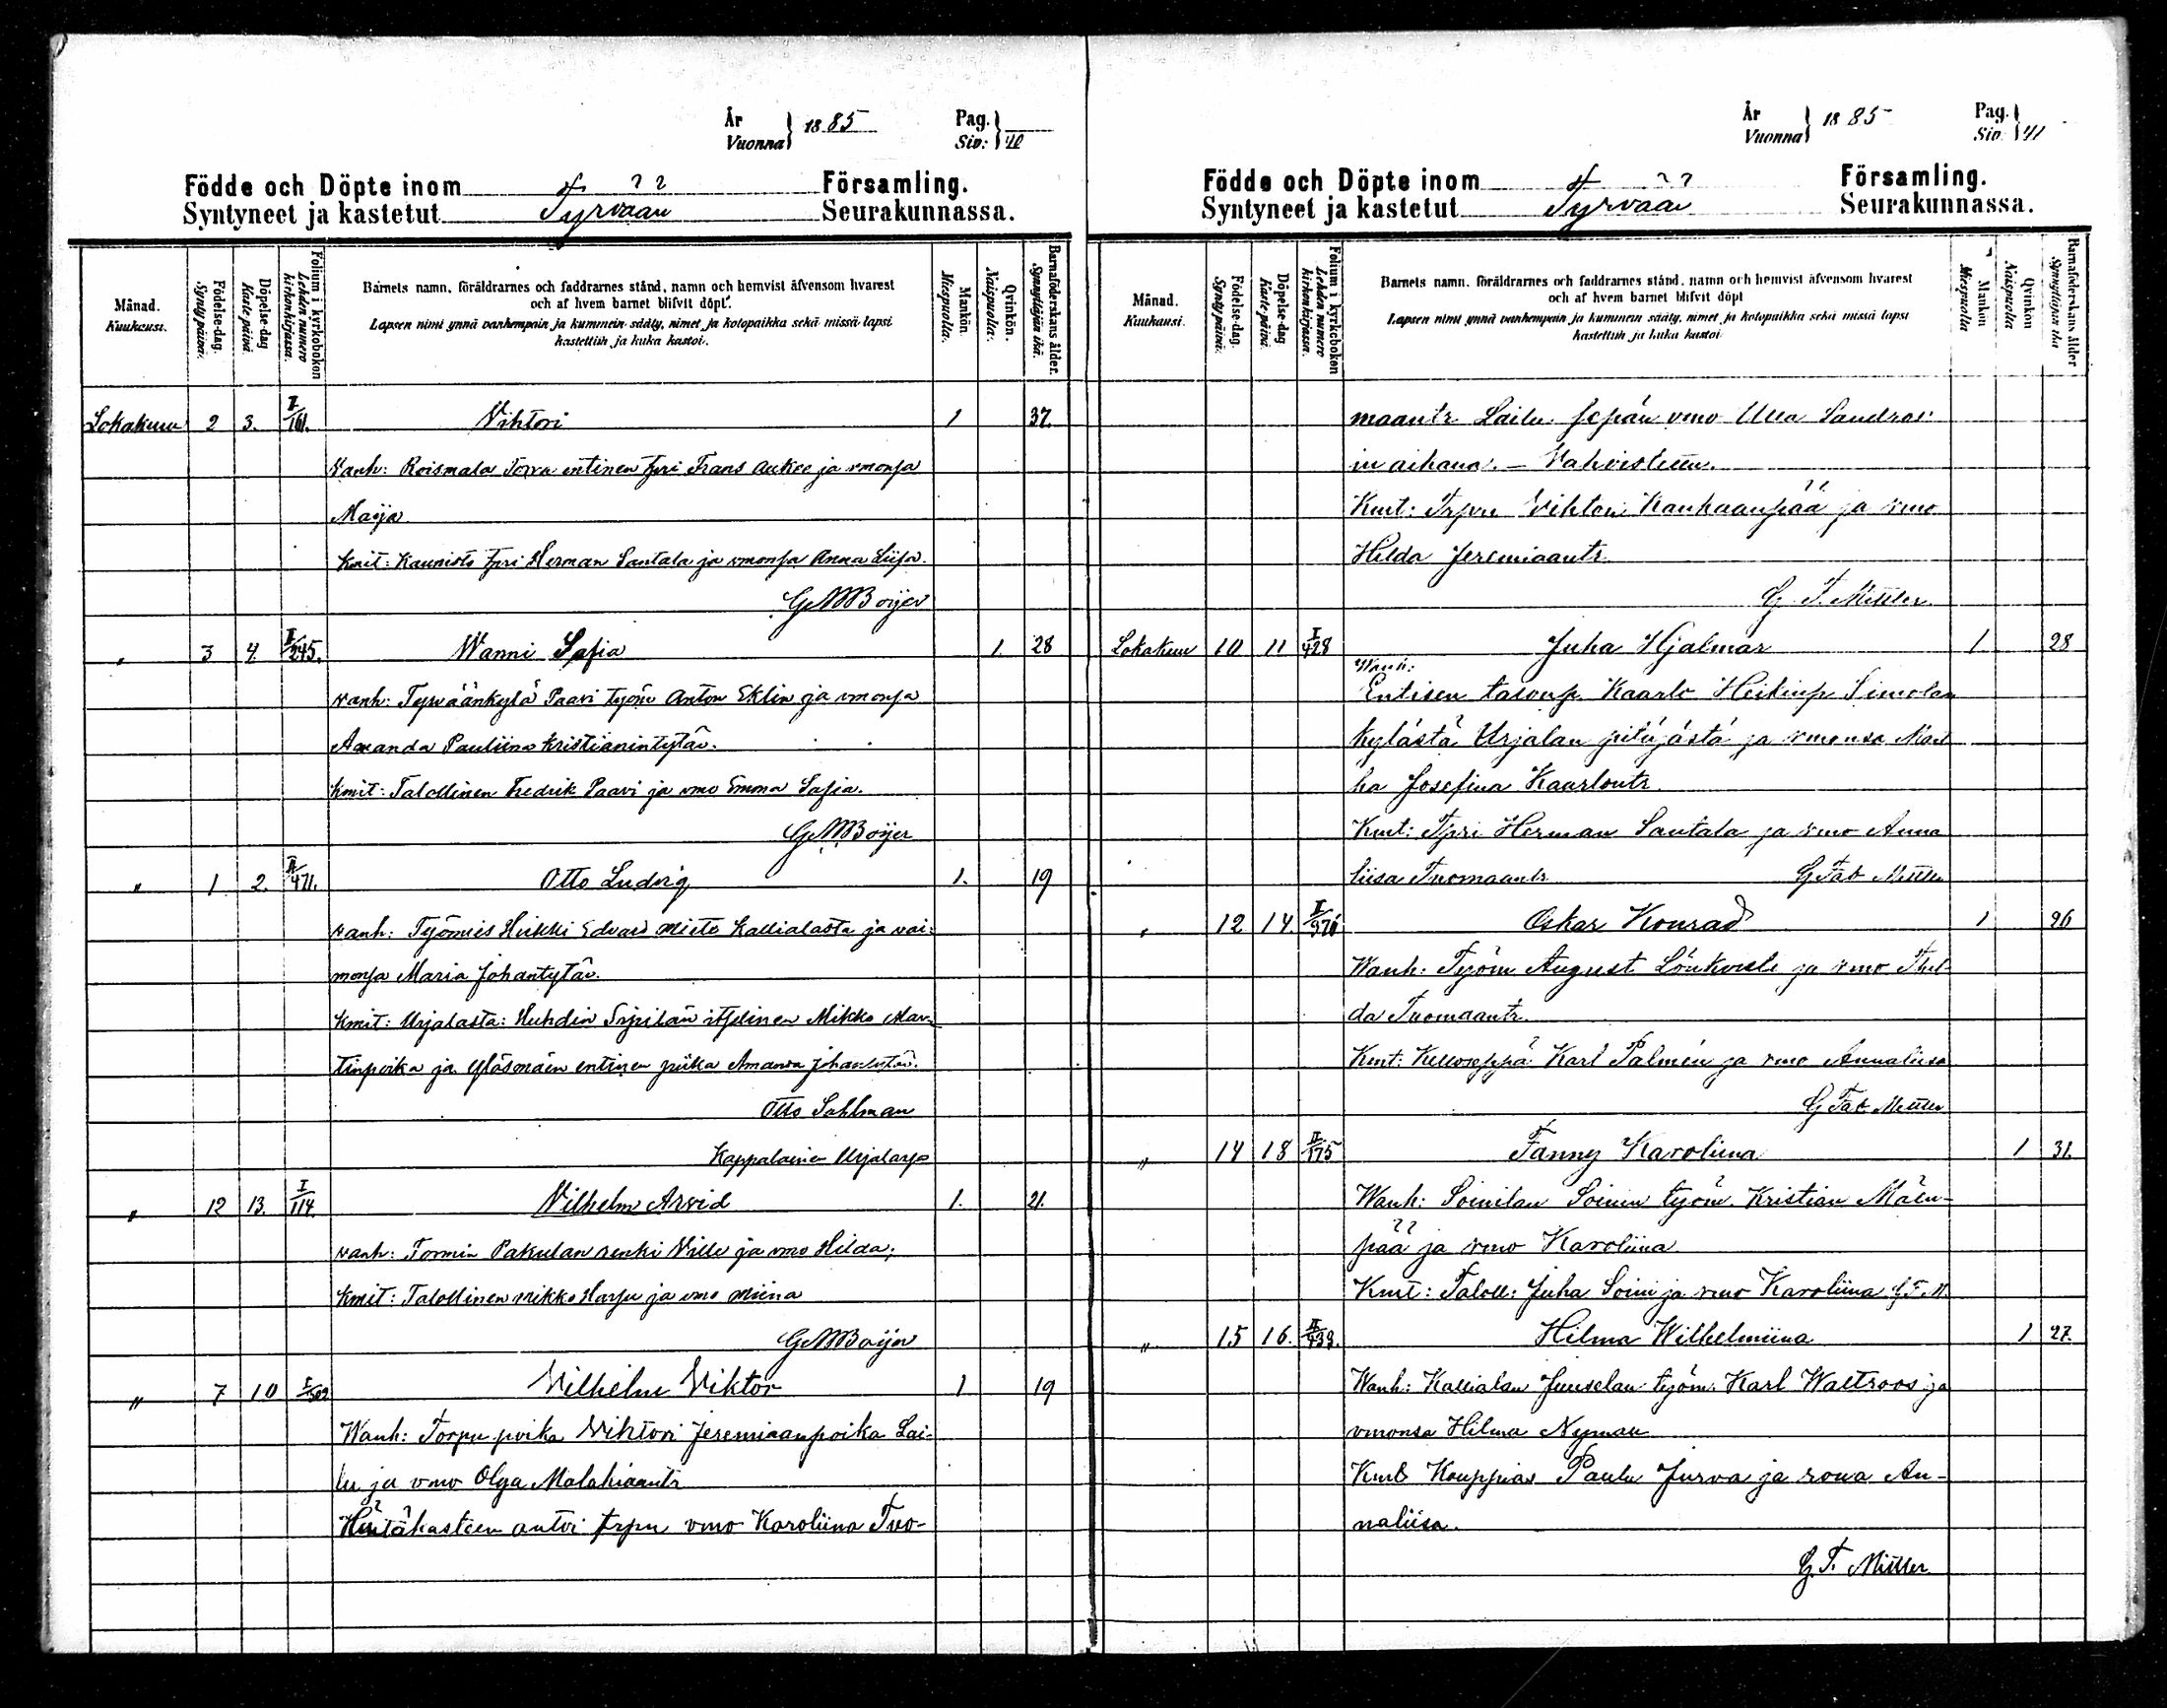 År
Vuonna } 1885
Pag.
Siv: } 40
Födde och Döpte inom Församling.
Syntyneet ja kastetut Tyrvään Seurakunnassa.
Månad.
Kuukausi.
Födelse-dag.
Synty päivä.
Döpelse-dag
Kaste päivä
Folium i kyrkoboken
Lehden numero
kirkonkirjassa.
Barnets namn, föräldrarnes och faddrarnes stånd, namn och hemvist äfvensom hvarest
och af hvem barnet blifvit döpt.
Lapsen nimi ynnä vanhempain ja kummein sääty, nimet ja kotopaikka sekä missä lapsi
kastettiin ja kuka kastoi.
Mankön.
Miespuolia.
Qvinkön.
Naispuolia.
Barnaföderskans ålder.
Synnyttäjän ikä.
Lokakuu 2 3. I/161. Vihtori 1 37.
Vanh: Roismala Torra entinen tpri Frans Aukee ja vmonsa
Maija
Kmit: Kaunisto tpri Herman Santala ja vmonsa Anna Liisa.
G M Boijer
" 3 4. I/245. Wanni Sofia 1. 28
vanh: Tyrväänkylä Paavi työm Anton Eklin ja vmonsa
Amanda Pauliina Kristianintytär.
Kmit: Talollinen Fredrik Paavi ja vmo Emma Sofia.
G M Boijer
" 1 2. II/471. Otto Ludvig 1. 19
vanh: Työmies Heikki Edvard Mieto Kallialasta ja vai-
monsa Maria Johantytär.
Kmit: Urjalasta: Huhdin itsellinen Mikko Mar-
tinpoika ja entinen piika Amanda Johantytär.
Otto Sahlman
Kappalainen Urjalassa
" 12 13. I/114. Vilhelm Arvid 1. 21.
vanh: Tormin Pakulan renki Ville ja vmo Hilda;
Kmit: Talollinen Mikko Harju ja vmo Miina
G M Boijer
" 7 10 I/502 Vilhelm Viktor 1 19
Wanh: Torpu poika Vihtori Jeremiaanpoika Lai-
lu ja vmo Olga Malakiaantr
Hätäkasteen antoi trpn vmo Karoliina Tuo-
År
Vuonna } 1885
Pag.
Siv } 41
Födde och Döpte inom Församling.
Syntyneet ja kastetut Tyrvään Seurakunnassa.
Månad.
Kuukausi.
Födelse-dag.
Synty päivä.
Döpelse-dag
Kaste päivä.
Folium i kyrkoboken
Lehden numero
kirkonkirjassa.
Barnets namn, föräldrarnes och faddrarnes stånd, namn och hemvist äfvensom hvarest
och af hvem barnet blifvit döpt
Lapsen nimi ynnä vanhempain ja kummein sääty, nimet ja kotopaikka sekä missä lapsi
kastettiin ja kuka kastoi
Mankön
Miespuolia
Qvinkön
Naispuolia
Barnaföderskans ålder
Synnyttäjän ikä
maantr Lailu. Sepän vmo Ulla Sandroos:
in aikana. – Vahvistettu.
Kmt: Trpn Vihtori Kanhaanpää ja vmo
Hilda Jeremiaantr
G. F. Mittler
Lokakuu 10 11 I/428 Juha Hjalmar 1 28
Wanh:
Entisen Kaarlo Heikinp Simolan
kylästä Urjalan pitäjästä ja vmonsa Mar
ha Josefina Kaarlontr
Kmt: Tpri Herman Santala ja vmo Anna
liisa Tuomaantr G Fab Mittler
" 12 14. I/376 Oskar Konrad 1 26
Wanh: Työm August Lönkvist ja vmo Thil-
da Tuomaantr.
Kmt: Kelloseppä Karl Palmén ja vmo Annaliisa
G Fab Mittler
" 14 18 II/175 Fanny Karoliina 1 31.
Wanh: Soinilan Soinin työm. Kristian Mäen-
pää ja vmo Karoliina
Kmt: Taloll: Juha Soini ja vmo Karoliina G. F. M.
" 15 16. II/433. Hilma Wilhelmiina 1 27.
Wanh: Kallialan Junselan työm. Karl Waltroos ja
vmonsa Hilma Nyman
Kmt Kauppias Paulu Jurva ja rova An-
naliisa.
G. F. Mittler